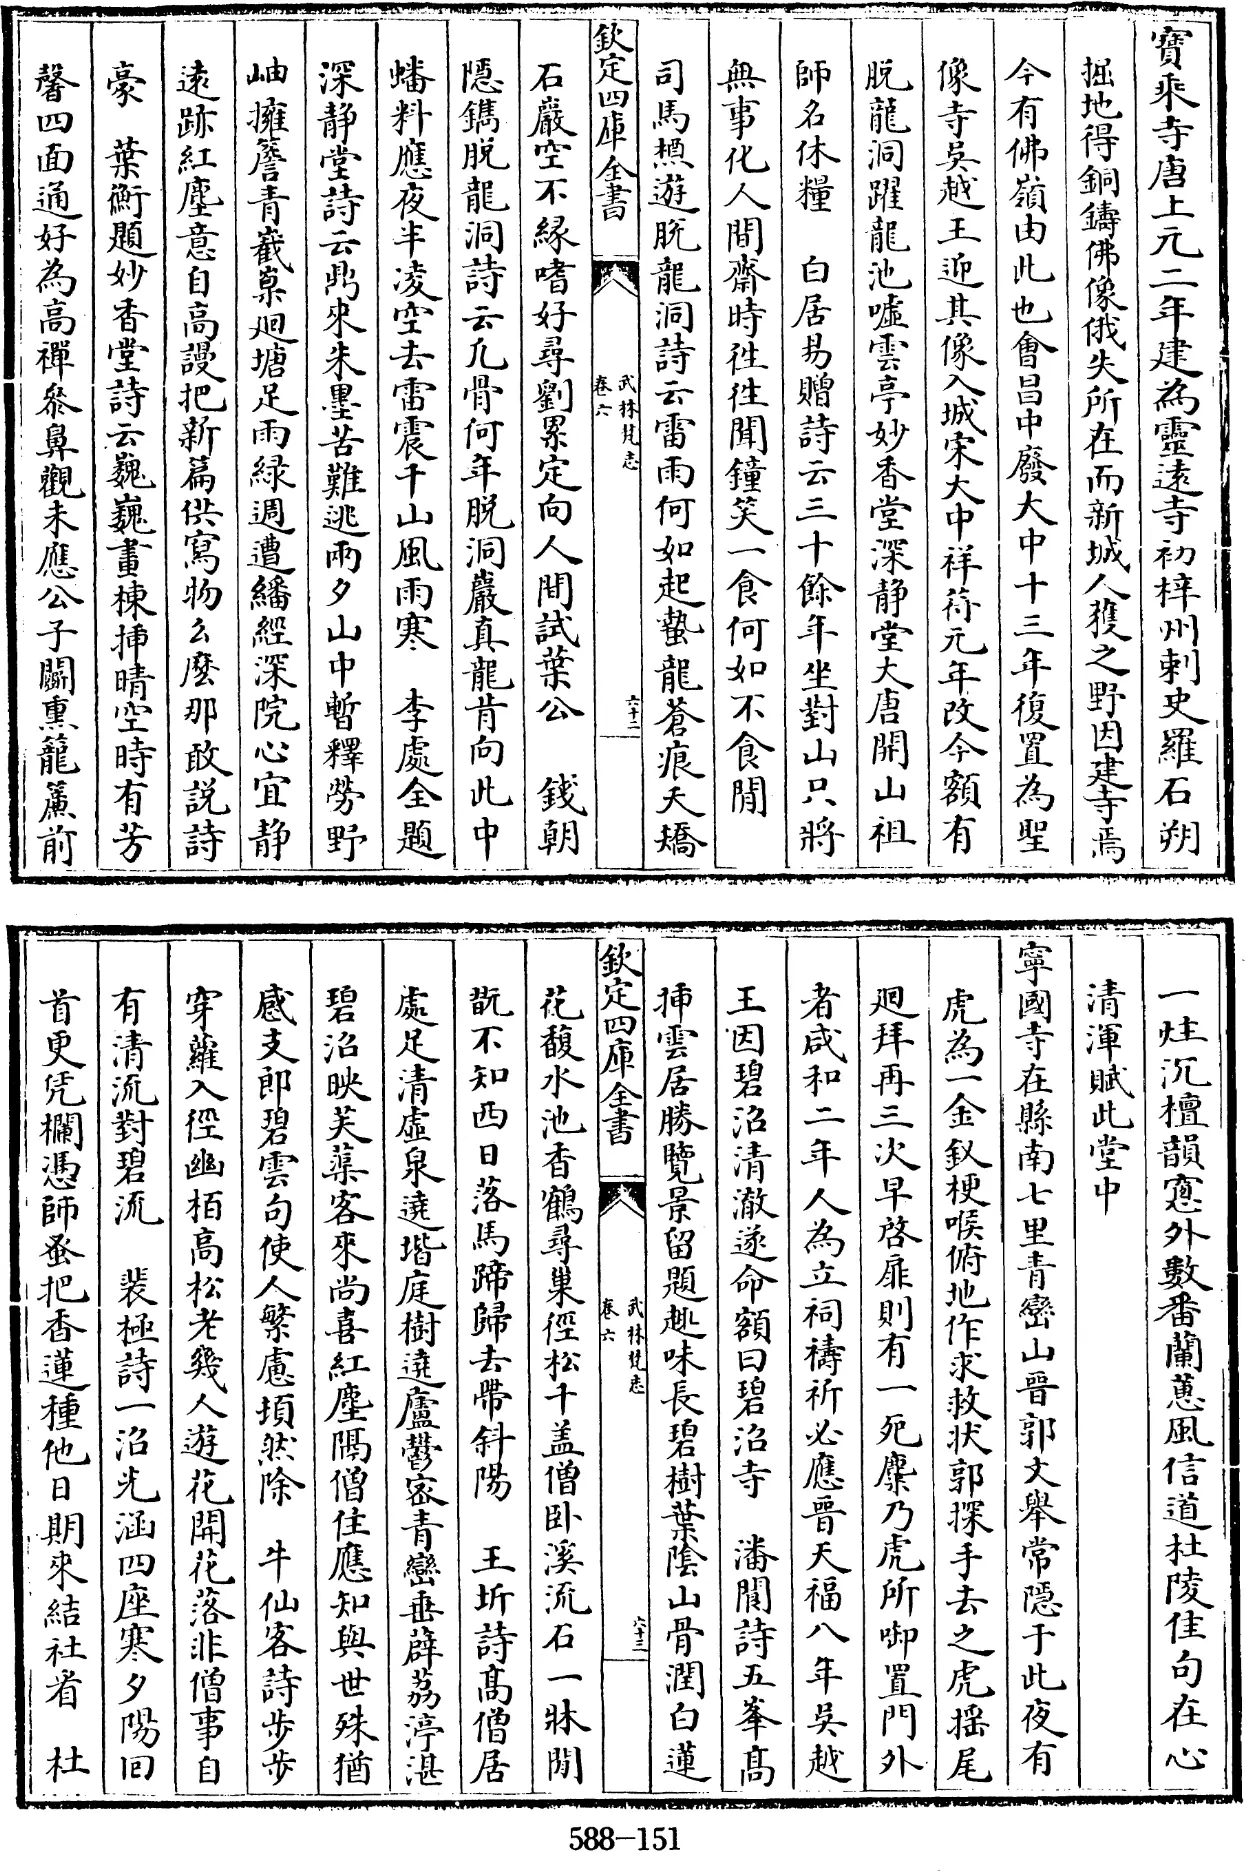 寶乘寺唐上元二年建為靈遠寺初梓州刺史羅石朔
掘地得銅鑄佛像俄失所在而新城人獲之野因建寺焉
今有佛嶺由此也會昌中廢大中十三年復置為聖
像寺吳越王迎其像入城宋大中祥符元年改今額有
脱龍洞躍龍池噓雲亭妙香堂深静堂大唐開山祖
師名休糧 白居易贈詩云三十餘年坐對山只將
無事化人間齋時徃徃聞鐘笑一食何如不食閒
司馬槱遊脱龍洞詩云雷雨何如起蟄龍蒼痕天矯
欽定四庫全書
武林梵志
卷六
六十二
石巖空不縁嗜好尋劉累定向人間試葉公 錢朝
隱鐫脱龍洞詩云凡骨何年脱洞巖真龍肯向此中
蟠料應夜半凌空去雷震千山風雨寒 李處全題
深静堂詩云鼎來朱墨苦難逃兩夕山中暫釋勞野
岫擁簷青巀嵲廻塘足雨緑週遭繙經深院心宜静
逺跡紅塵意自高謾把新篇供寫物么麽那敢説詩
豪 葉衡題妙香堂詩云巍巍畫棟挿晴空時有芳
馨四面通好為高禪叅鼻觀未應公子鬬熏籠簾前
一炷沉檀韻窻外數番蘭蕙風信道杜陵佳句在心
清渾賦此堂中
寧國寺在縣南七里青巒山晉郭文舉常隱于此夜有
虎為一金釵梗喉俯地作求救狀郭探手去之虎揺尾
廻拜再三次早啓扉則有一死麋乃虎所啣置門外
者咸和二年人為立祠禱祈必應晉天福八年吳越
王因碧沼清澈遂命額曰碧沼寺 潘閬詩五峯髙
挿雲居勝覽景留題趣味長碧樹葉陰山骨潤白蓮
欽定四庫全書
武林梵志
卷六
六十三
花馥水池香鶴尋巢徑松千盖僧卧溪流石一牀閒
翫不知西日落馬蹄歸去帶斜陽 王圻詩髙僧居
處足清虛泉遶堦庭樹遶廬鬱密青巒垂薜荔渟湛
碧沼映芙蕖客來尚喜紅塵隔僧住應知與世殊猶
感支郎碧雲句使人繁慮頓然除 牛仙客詩步步
穿蘿入徑幽栢高松老幾人遊花開花落非僧事自
有清流對碧流 裴極詩一沼光涵四座寒夕陽回
首更凭欄憑師蚤把香蓮種他日期來結社㸔 杜
588-151